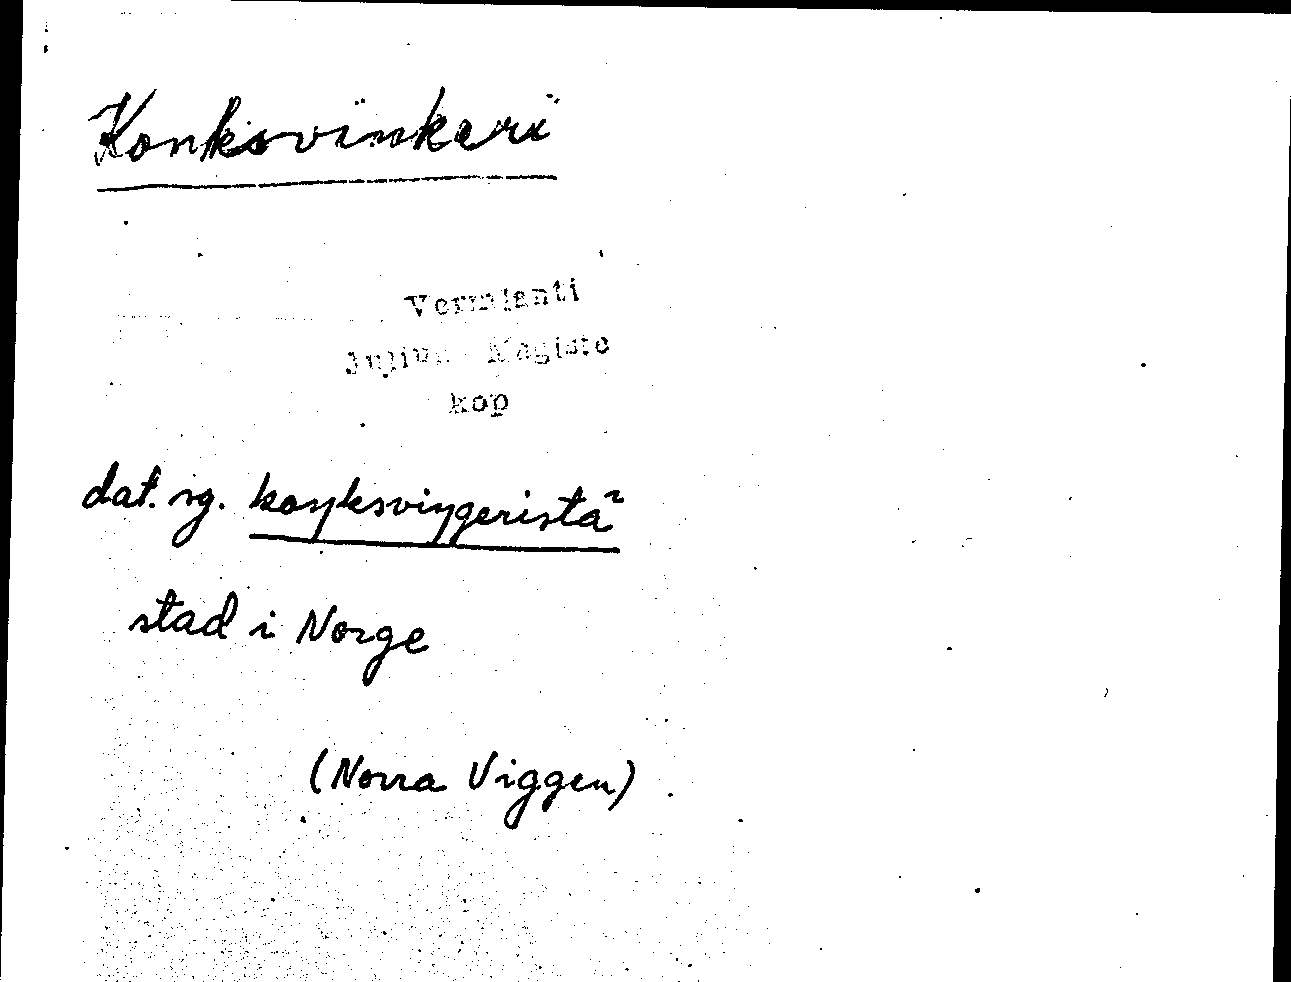 Konksvinkeri
Vermlanti
Julius Mägiste
kop
dat. sg. koŋksviŋgeristä̃
stad i Norge
(Norra Viggen)